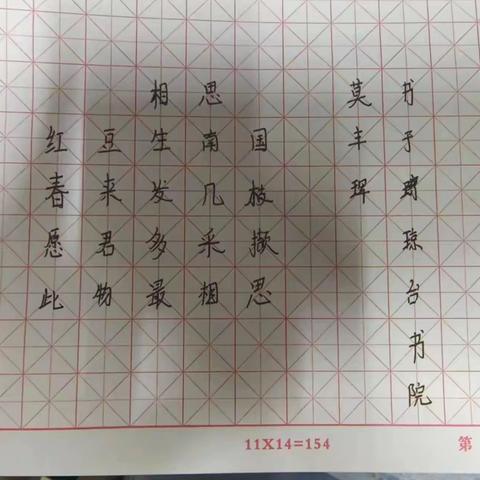 相思
红豆生南国
春来发几枝
愿君多采撷
此物最相思
莫丰珲
书于琼台书院
11X14=154
第